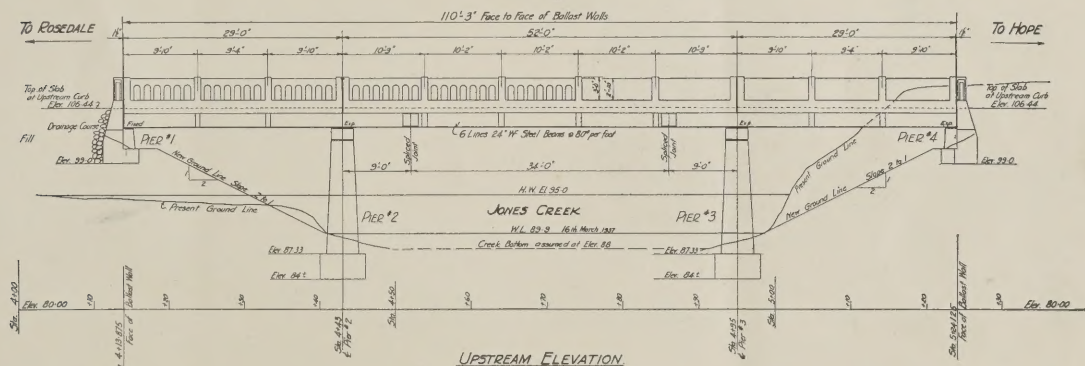 110'-3" Face to Face of Ballast Walls
TO ROSEDALE
TO HOPE
1½"
29'-0"
52'-0"
29'-0"
1½"
9'-10"
9'-4"
9'-10"
10'-9"
10'-2"
10'-2"
10'-2"
10'-9"
9'-10"
9'-4"
9'-10"
Top of Slab
at Upstream Curb
Elev. 106.44
Top of Slab
at Upstream Curb
Elev. 106.44
Drainage Course
Fill
Fixed
Exp.
Exp.
Exp.
6 Lines 24" WF Steel Beams @ 80# per foot
PIER #1
PIER #4
Elev. 99.0
Elev. 99.0
Spliced
Joint
Spliced
Joint
9'-0"
34'-0"
9'-0"
New Ground Line Slope 2 to 1
1
2
Present Ground Line
New Ground Line Slope 2 to 1
1
2
H.W. El. 95.0
Present Ground Line
PIER #2
JONES CREEK
PIER #3
W.L. 89.9 16th March 1937
Creek Bottom assumed at Elev. 88
Elev. 87.33
Elev. 87.33
Elev. 84±
Elev. 84±
Sta. 4+00
Elev. 80.00
+10
+20
+30
+40
Sta. 4+50
+60
+70
+80
+90
Sta. 5+00
+10
+20
+30
Elev. 80.00
4+13.875
Face of Ballast Wall
Sta. 4+43
℄ Pier #2
Sta. 4+95
℄ Pier #3
Sta. 5+24.125
Face of Ballast Wall
UPSTREAM ELEVATION